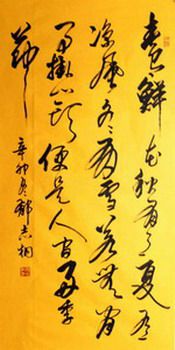 春有鲜花秋有月夏有
凉风冬有雪若无闲
事挂心头便是人间好季
节
辛卯冬郁志桐